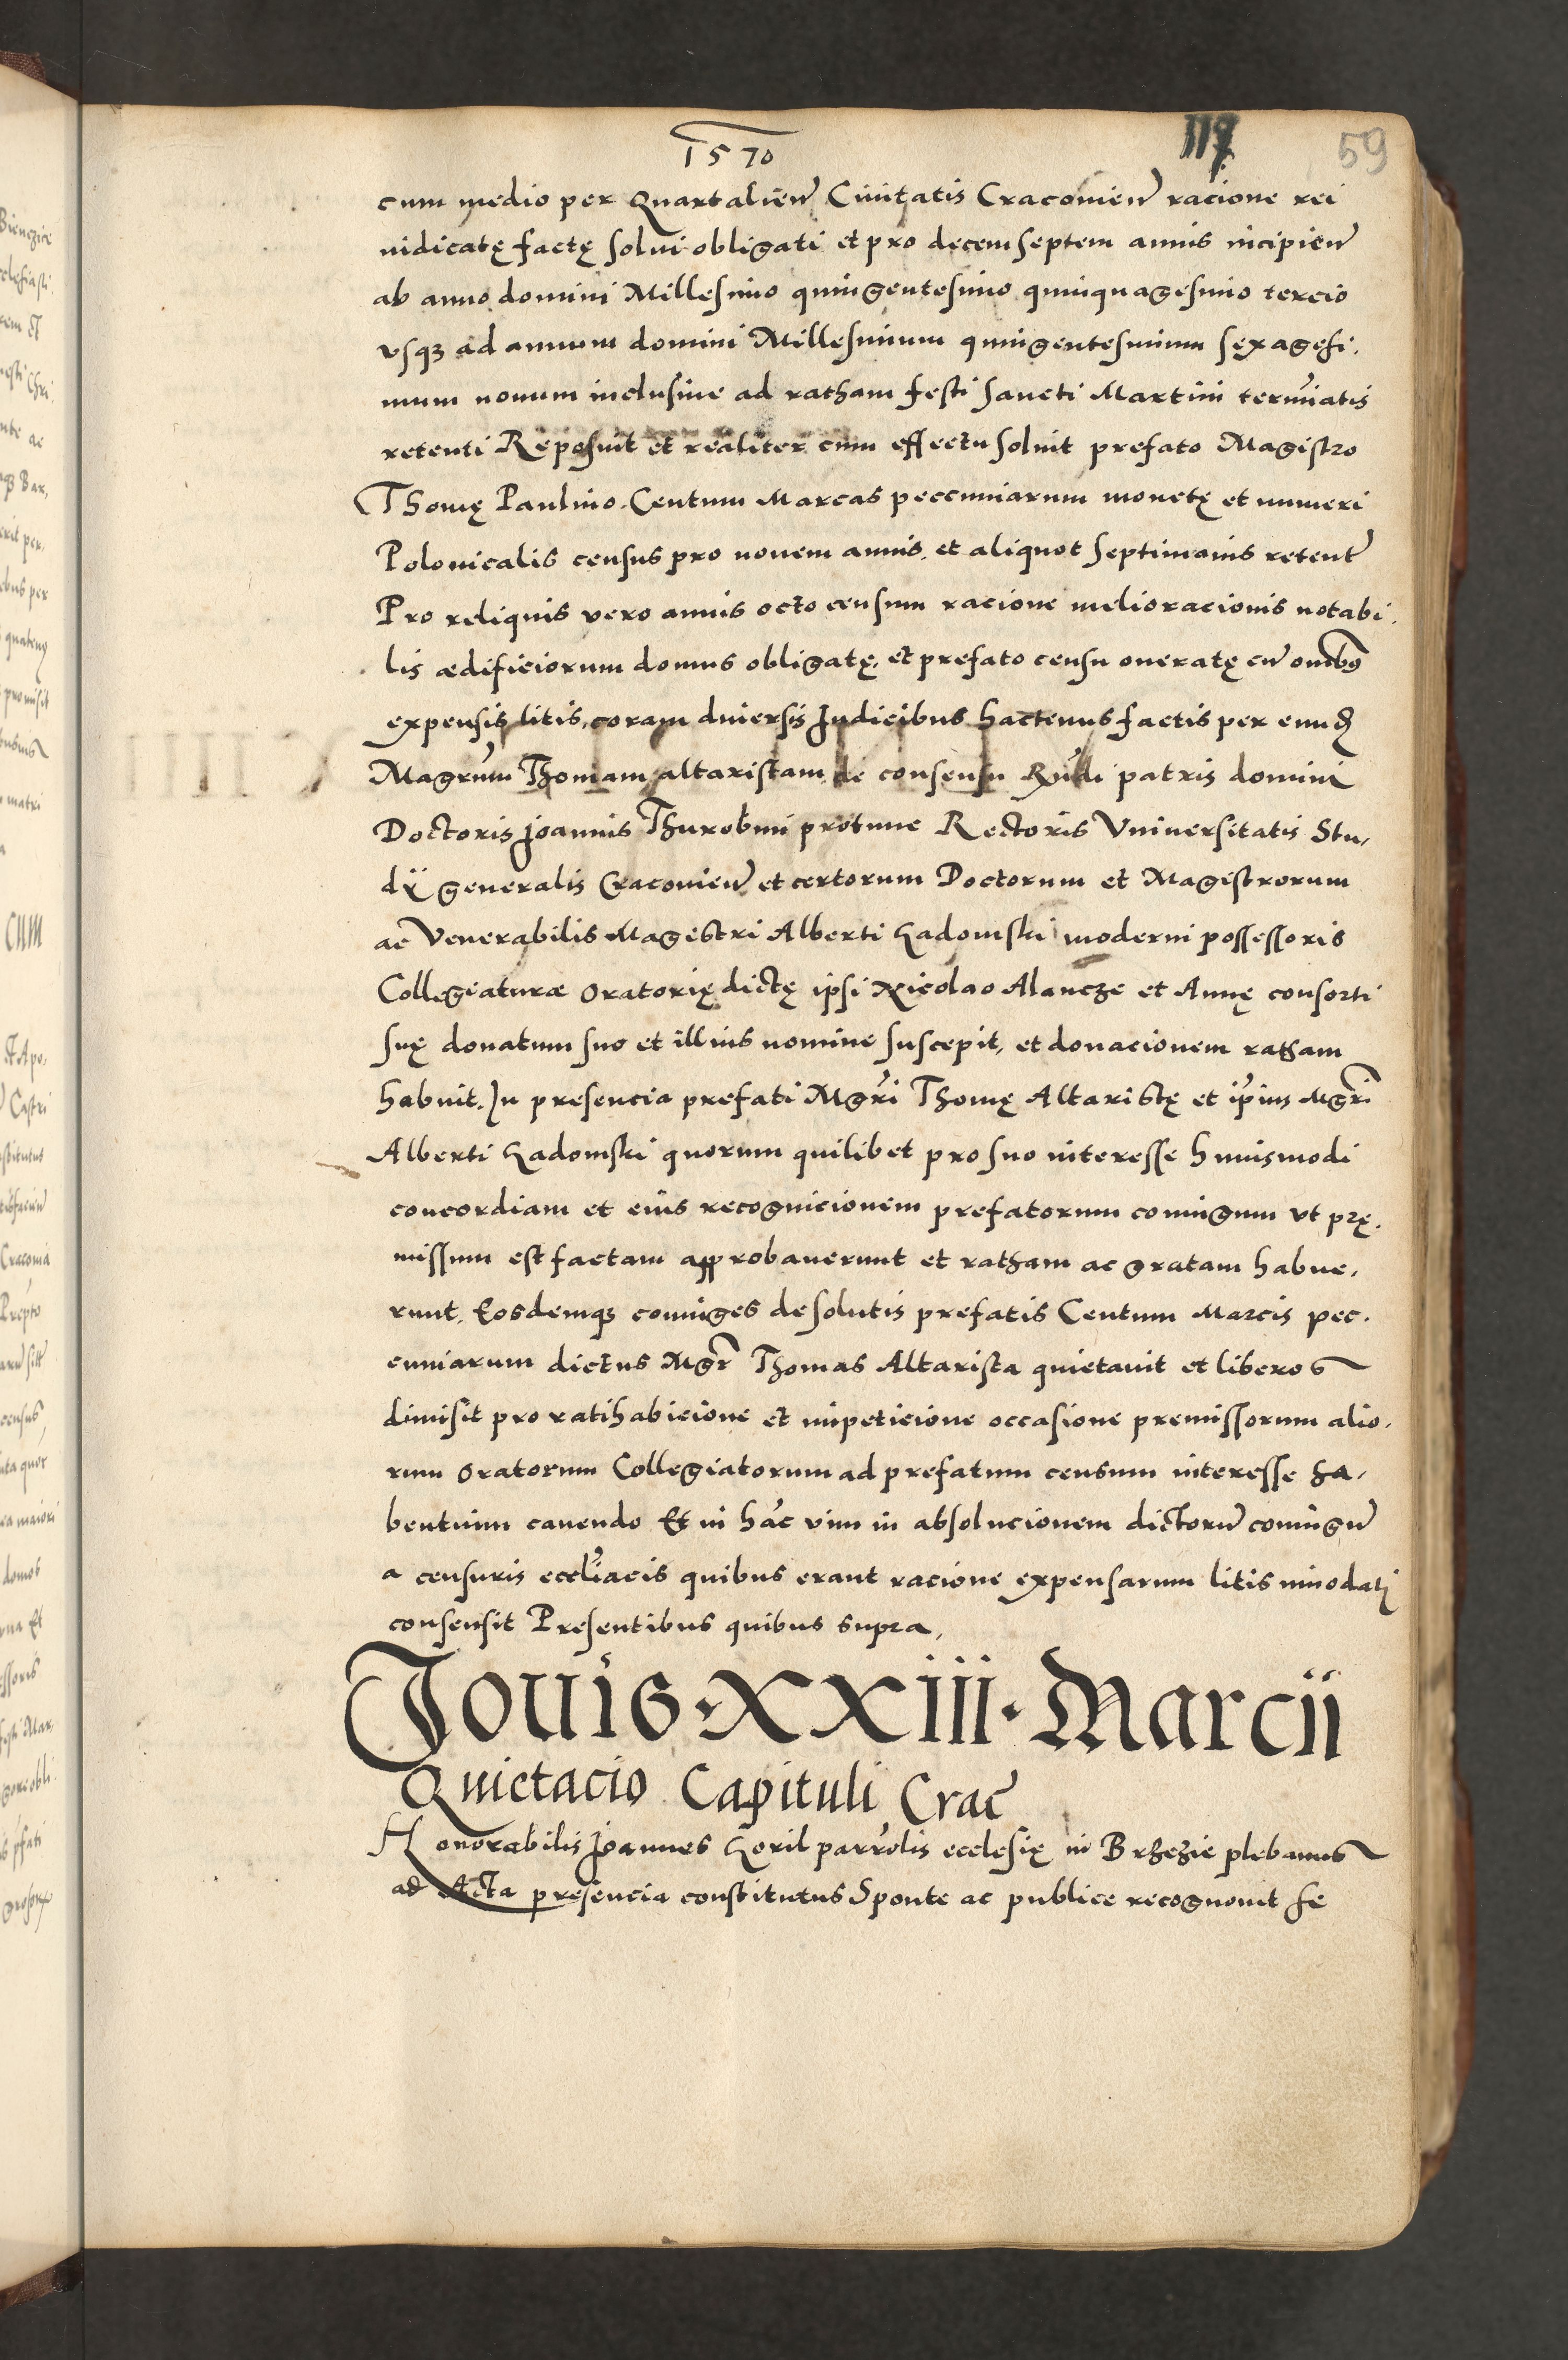 1570
117
59
cum medio per Quartalień Civitatis Cracovień racione rei
iudicatę factę solvi obligati et pro decem septem annis incipień
ab anno domini Millesimo quingentesimo quinquagesimo tercio
vsqz ad annum domini Millesimum quingentesimum sexagesi.
mum nonum inclusive ad ratham festi Sancti Martini terminatis
retenti Reposuit et realiter cum effectu solvit prefato Magistro
Thomę Paulino. Centum Marcas peccuniarum monetę et numeri
Polonicalis census pro novem annis, et aliquot septimanis retent
Pro reliquis vero annis octo censum racione melioracionis notabi.
lis ædificiorum domus obligatę, et prefato censu oneratę cū omibȝ
expensis litis, coram diversis Judicibus hactenus factis per eund
Magrum Thomam altaristam de consensu Rndi patris domini
Doctoris Joannis Thurobini protunc Rectoris Vniversitatis Stu,
dÿ generalis Cracovień et certorum Doctorum et Magistrorum
ac Venerabilis Magistri Alberti Ladomski moderni possessoris
Collegiaturæ Oratorię dictę ipsi Nicolao Alancze et Annę consorti
suę donatum suo et illius nomine suscepit, et donacionem ratham
habuit. In presencia prefati Mgri Thomę Altaristę et ipius Mgri
Alberti Ladomski quorum quilibet pro suo interesse huiusmodi
concordiam et eius recognicionem prefatorum coniugum vt prę.
missum est factam approbaverunt et ratham ac gratam habue,
runt. Eosdemqz coniuges de solutis prefatis Centum Marcis pec.
cuniarum dictus Mgr Thomas Altarista quietavit et liberos
dimisit pro ratihabicione et impeticione occasione premissorum alio.
rum Oratorum Collegiatorum ad prefatum censum interesse ha,
bentium cavendo Et in hac vim in absolucionem dictorū coniugū
a censuris eccliacis quibus erant racione expensarum litis innodati
consensit Presentibus quibus supra,
Jovis · XXIII · Marcii
Quietacio Capituli Crac
Honorabilis Joannes Koril parrolis ecclesię in Brzezie plebanus
ad Acta presencia constitutus Sponte ac publice recognovit se